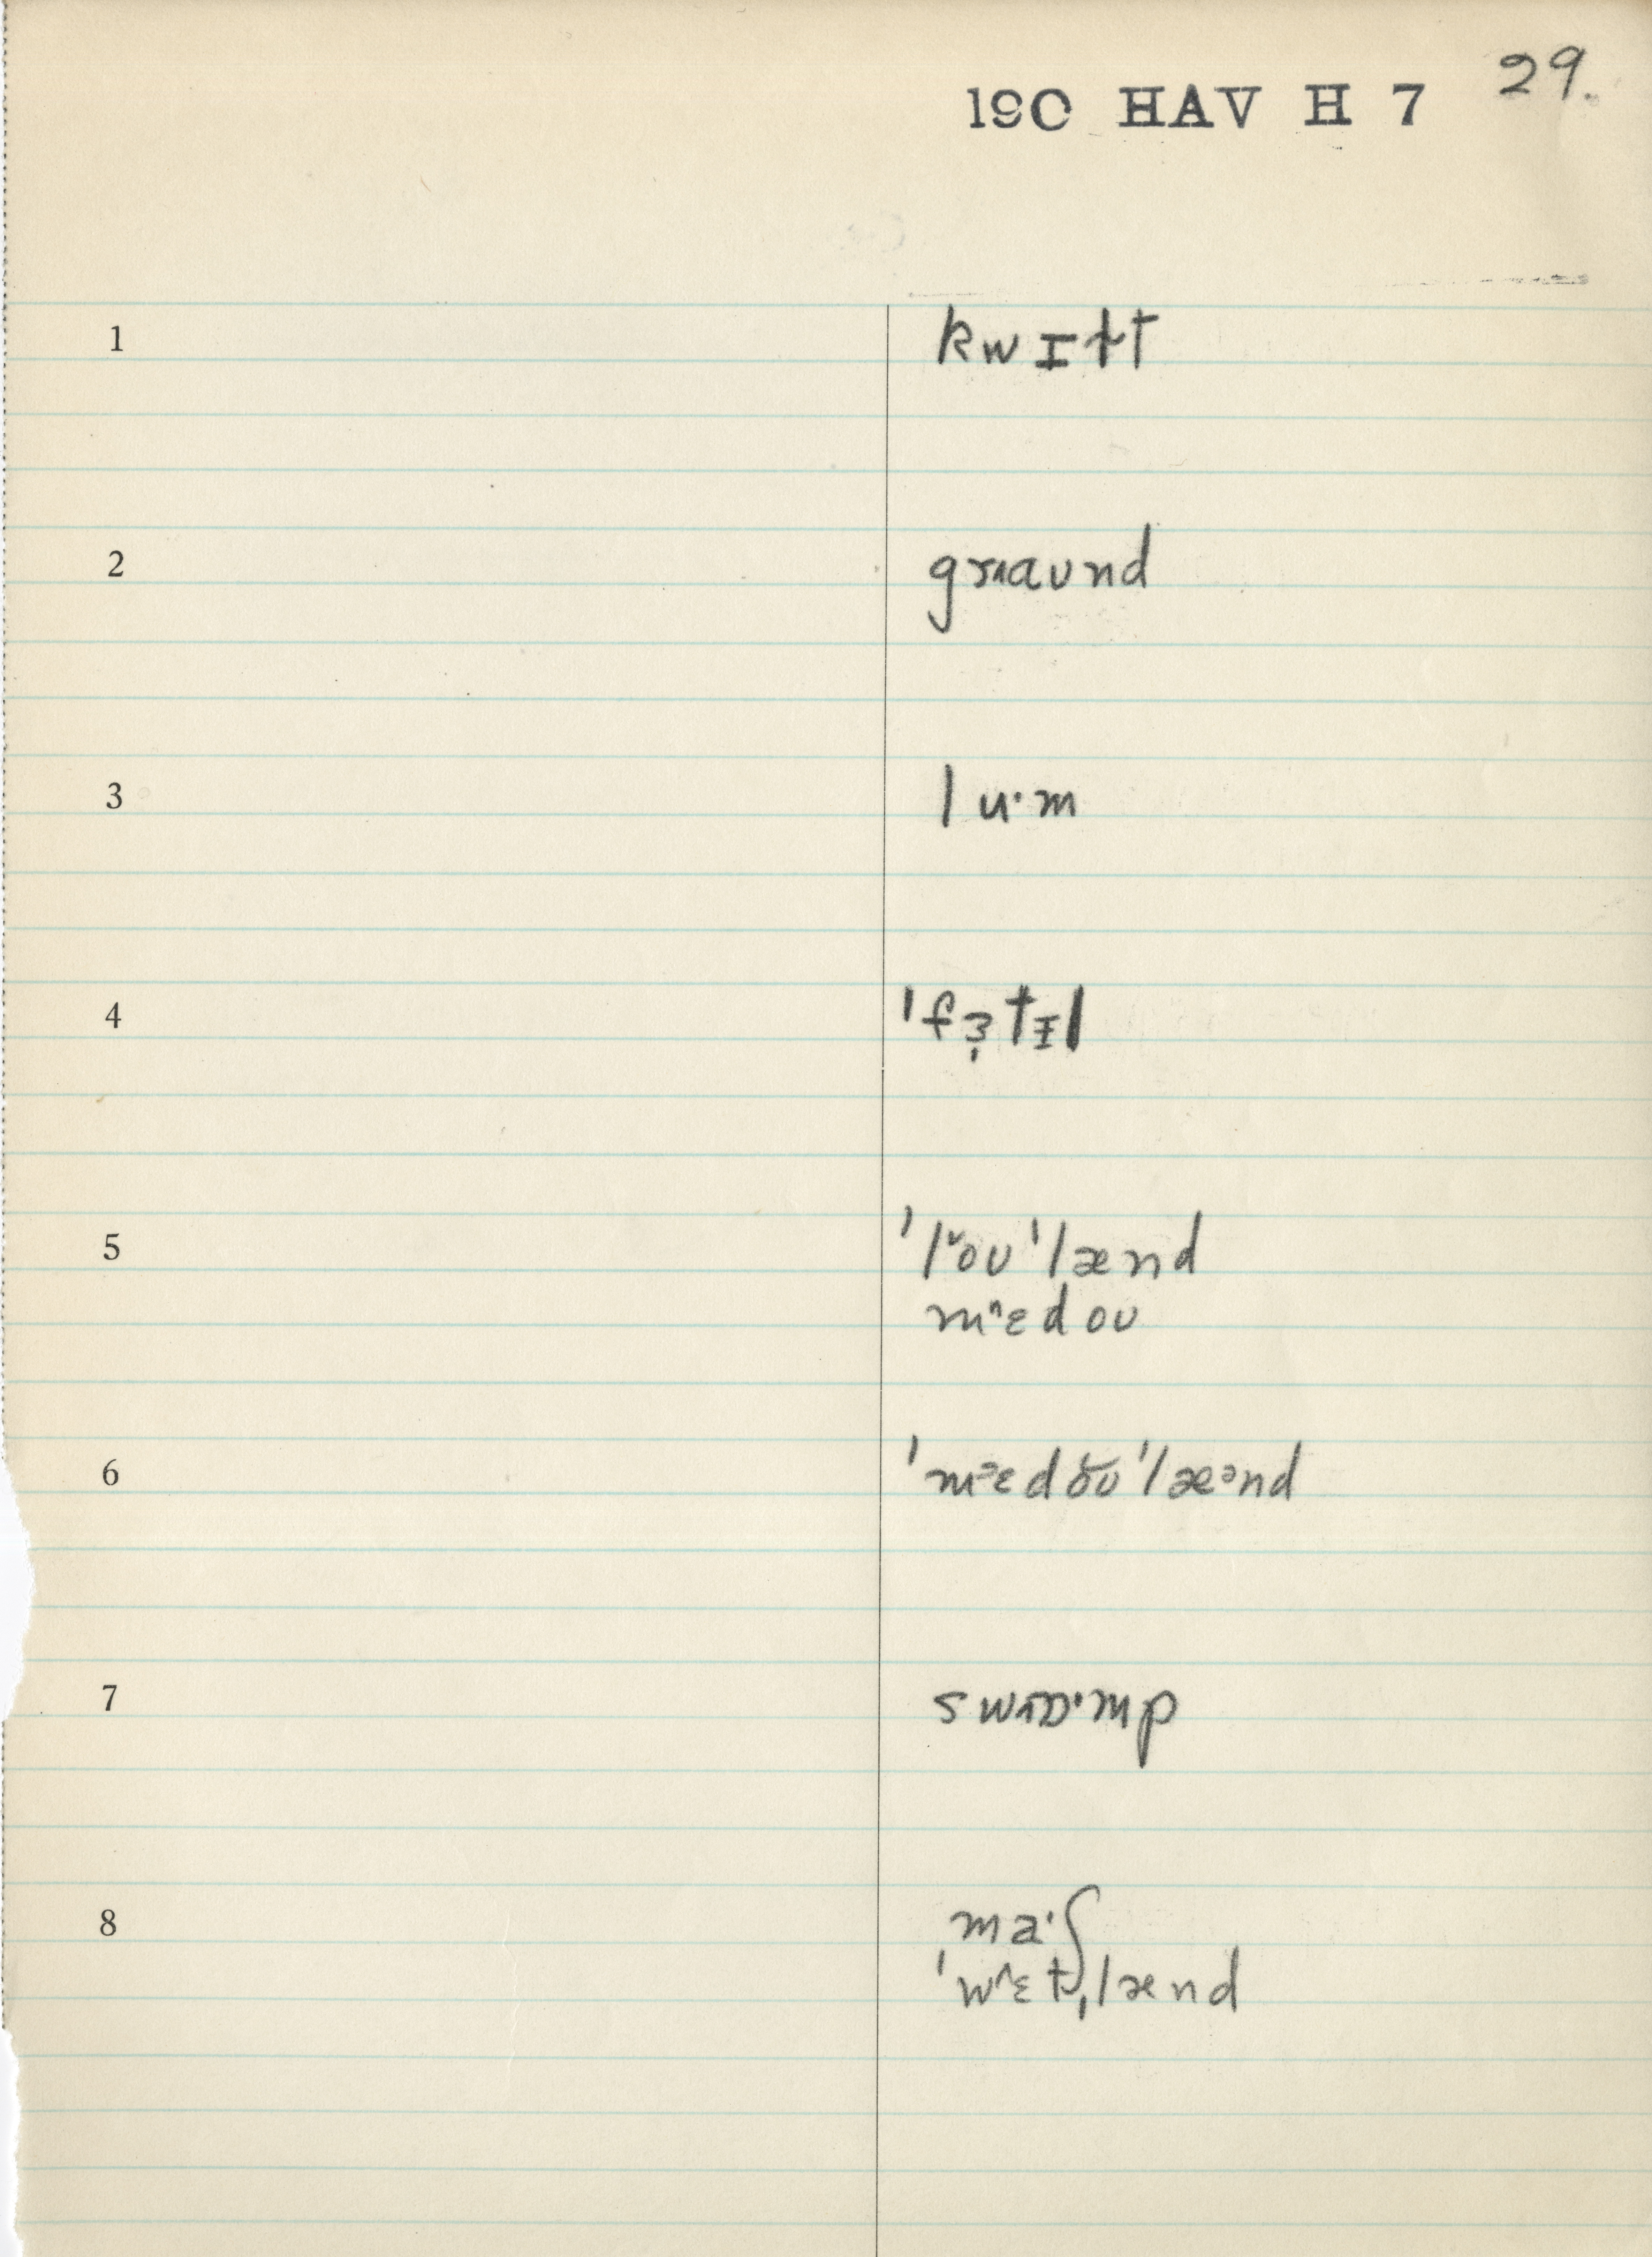 19C HAV H 7 29.
1 kwɪɫt
2 graʊnd
3 lu·m
4 ˈfɜ̩tɨl
5 ˈlˇoʊˈlænd
mˆɛdoʊ
6 ˈmᵊɛdŏʊˈlæᵊnd
7 swɒ·mp
8 ma·ʃ
ˈwˆɛt̬ˌlænd